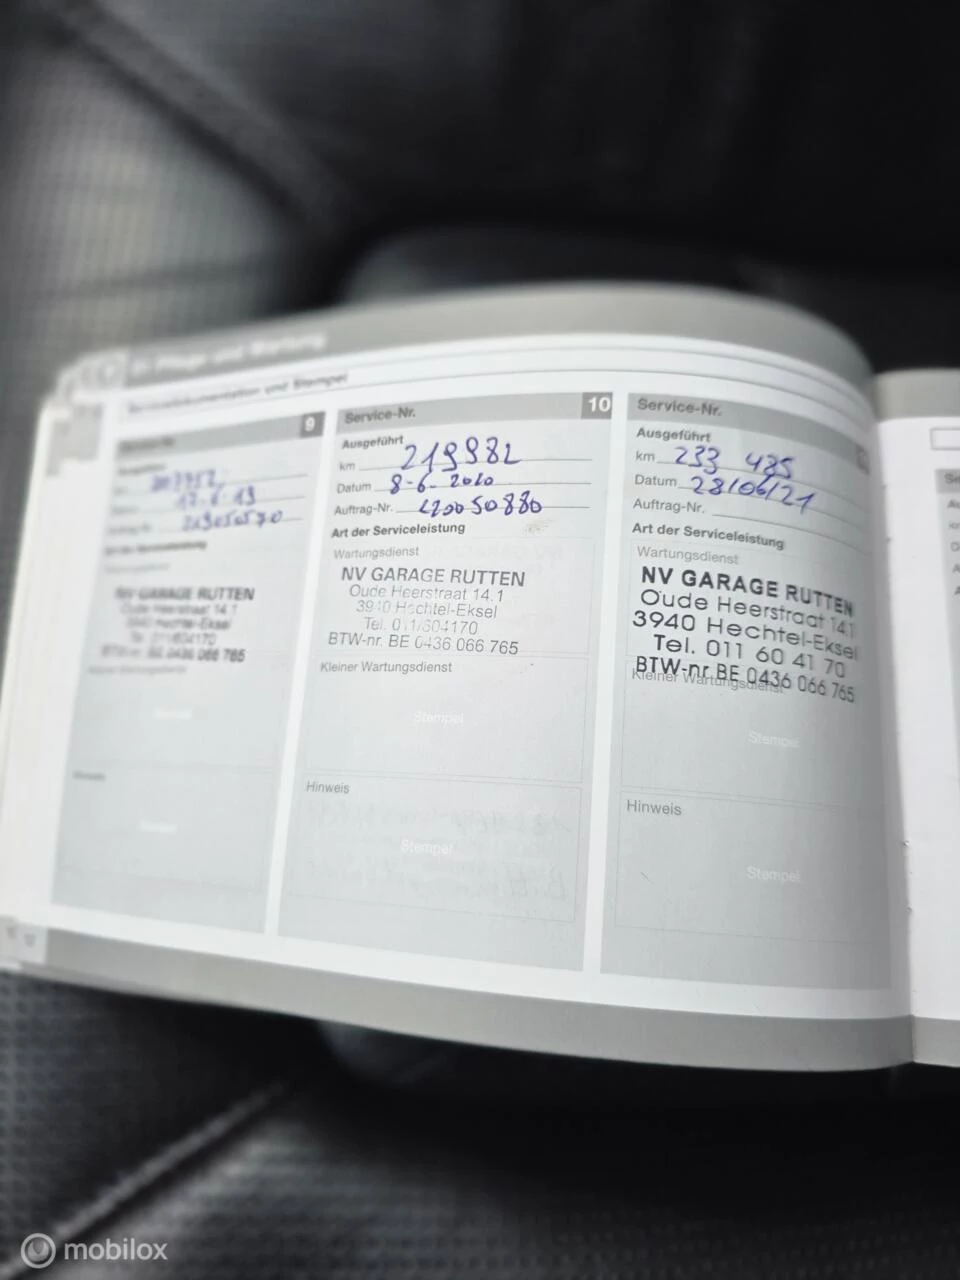 Pflege und Wartung
Servicedokumentation und Stempel
9
17.6.19
Art der Serviceleistung
NV GARAGE RUTTEN
Oude Heerstraat 14.1
3940 Hechtel-Eksel
Tel. 011/604170
BTW-nr. BE 0436 066 765
Kleiner Wartungsdienst
Stempel
Hinweis
Stempel
Service-Nr. 10
Ausgeführt
km 219982
Datum 8-6-2020
Auftrag-Nr. 220050880
Art der Serviceleistung
Wartungsdienst
NV GARAGE RUTTEN
Oude Heerstraat 14.1
3940 Hechtel-Eksel
Tel. 011/604170
BTW-nr. BE 0436 066 765
Kleiner Wartungsdienst
Stempel
Hinweis
Stempel
Service-Nr.
Ausgeführt
km 233 485
Datum 28/06/21
Auftrag-Nr.
Art der Serviceleistung
Wartungsdienst
NV GARAGE RUTTEN
Oude Heerstraat 14.1
3940 Hechtel-Eksel
Tel. 011 60 41 70
BTW-nr BE 0436 066 765
Kleiner Wartungsdienst
Stempel
Hinweis
Stempel
mobilox